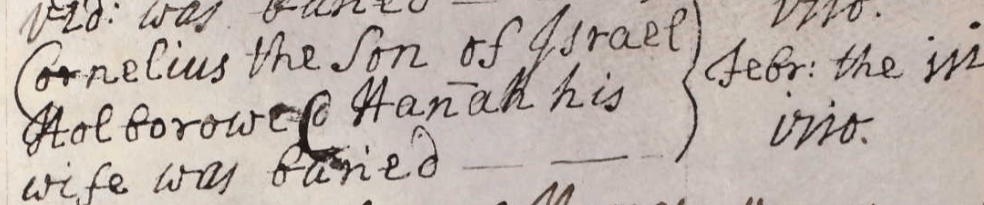 vid: was buried — viio.
Cornelius the Son of Israel
Holborowe & Hanāh his
wife was buried — —
Febr: the iii
viio.